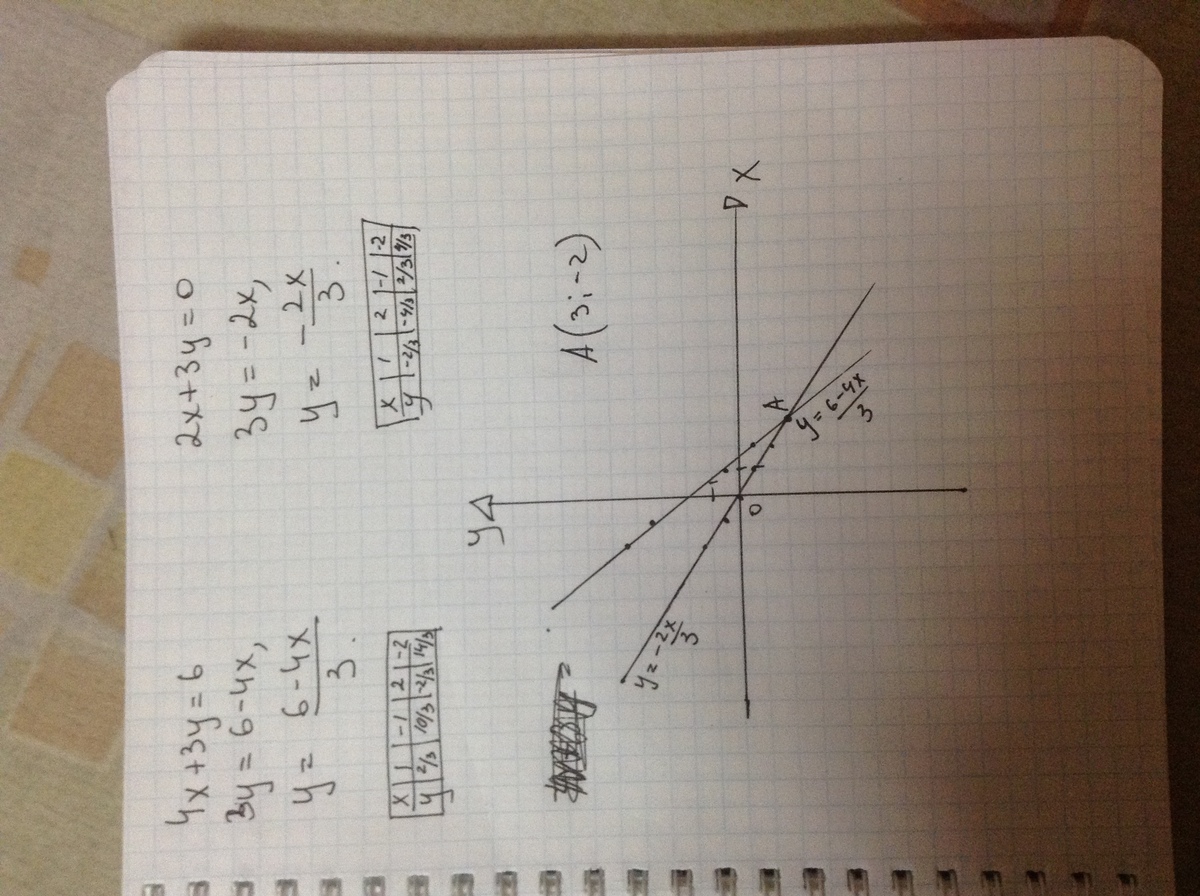 4x+3y=6
3y=6-4x,
y= 6-4x/3.
x | 1 | -1 | 2 | -2
y | 2/3 | 10/3 | -2/3 | 14/3
2x+3y=0
3y=-2x,
y= -2x/3.
x | 1 | 2 | -1 | -2
y | -2/3 | -4/3 | 2/3 | 4/3
A(3;-2)
y
x
1
1
0
A
y=-2x/3
y=6-4x/3